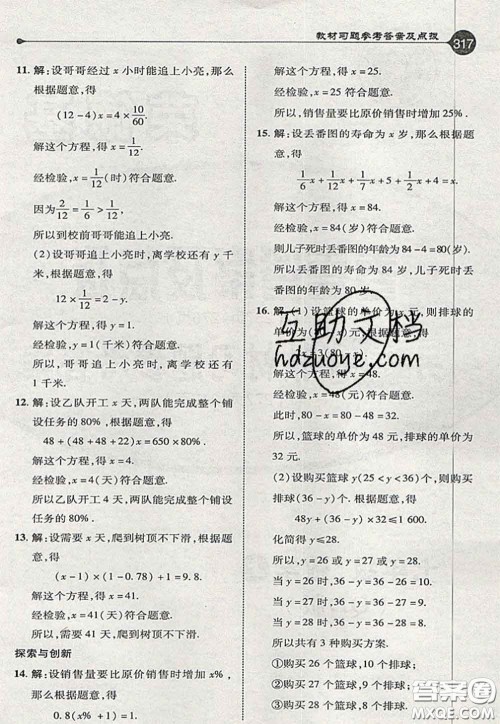 教材习题参考答案及点拨
317
11. 解：设哥哥经过 x 小时能追上小亮, 那么
根据题意, 得
(12－4)x＝4×10/60.
解这个方程, 得 x＝1/12.
经检验, x＝1/12(时)符合题意.
因为2/12＝1/6＞1/12,
所以到校前哥哥能追上小亮.
(2)设哥哥追上小亮时, 离学校还有 y 千
米, 根据题意, 得
12×1/12＝2－y.
解这个方程, 得 y＝1.
经检验, y＝1(千米)符合题意.
所以, 哥哥追上小亮时, 离学校还有
1 千米.
12. 解：设乙队开工 x 天, 两队能完成整个铺
设任务的 80%, 根据题意, 得
48＋(48＋48＋22)x＝650×80%.
解这个方程, 得 x＝4.
经检验, x＝4(天)符合题意.
所以乙队开工 4 天, 两队能完成整个铺设
任务的 80%.
13. 解：设需要 x 天, 爬到树顶不下滑, 根据题
意, 得
(x－1)×(1－0.78)＋1＝9.8.
解这个方程, 得 x＝41.
经检验, x＝41(天)符合题意.
所以, 需要 41 天, 爬到树顶不下滑.
探索与创新
14. 解：设销售量要比原价销售时增加 x%,
那么根据题意, 得
0.8(x%＋1)＝1.
解这个方程, 得 x＝25.
经检验, x＝25 符合题意.
所以, 销售量要比原价销售时增加 25%.
15. 解：设丢番图的寿命为 x 岁, 那么根据题
意, 得
1/6x＋1/12x＋1/7x＋5＋1/2x＋4＝x.
解这个方程, 得 x＝84.
经检验, x＝84(岁)符合题意.
则儿子死时丢番图的年龄为 84－4＝80(岁).
所以丢番图的寿命为 84 岁, 儿子死时丢
番图的年龄为 80 岁.
16. 解：(1)设篮球的单价为 x 元, 则排球的
单价为(80－x)元, 根据题意, 得
x＝3(80－x).
解这个方程, 得 x＝48.
经检验, x＝48(元)符合题意.
此时, 80－x＝80－48＝32.
所以, 篮球的单价为 48 元, 排球的单价为
32 元.
(2)设购买篮球 y(25＜y＜36)个, 则购买
排球(36－y)个, 根据题意, 得
48y＋(36－y)×32≤1 600.
化简得 y≤28.
所以, y＝26 或 y＝27 或 y＝28.
当 y＝26 时, 36－y＝36－26＝10；
当 y＝27 时, 36－y＝36－27＝9；
当 y＝28 时, 36－y＝36－28＝8.
所以共有 3 种购买方案.
①购买 26 个篮球, 10 个排球；
②购买 27 个篮球, 9 个排球；
③购买 28 个篮球, 8 个排球.
互助文档
hdzuoye.com
答案圈
MXQE.COM